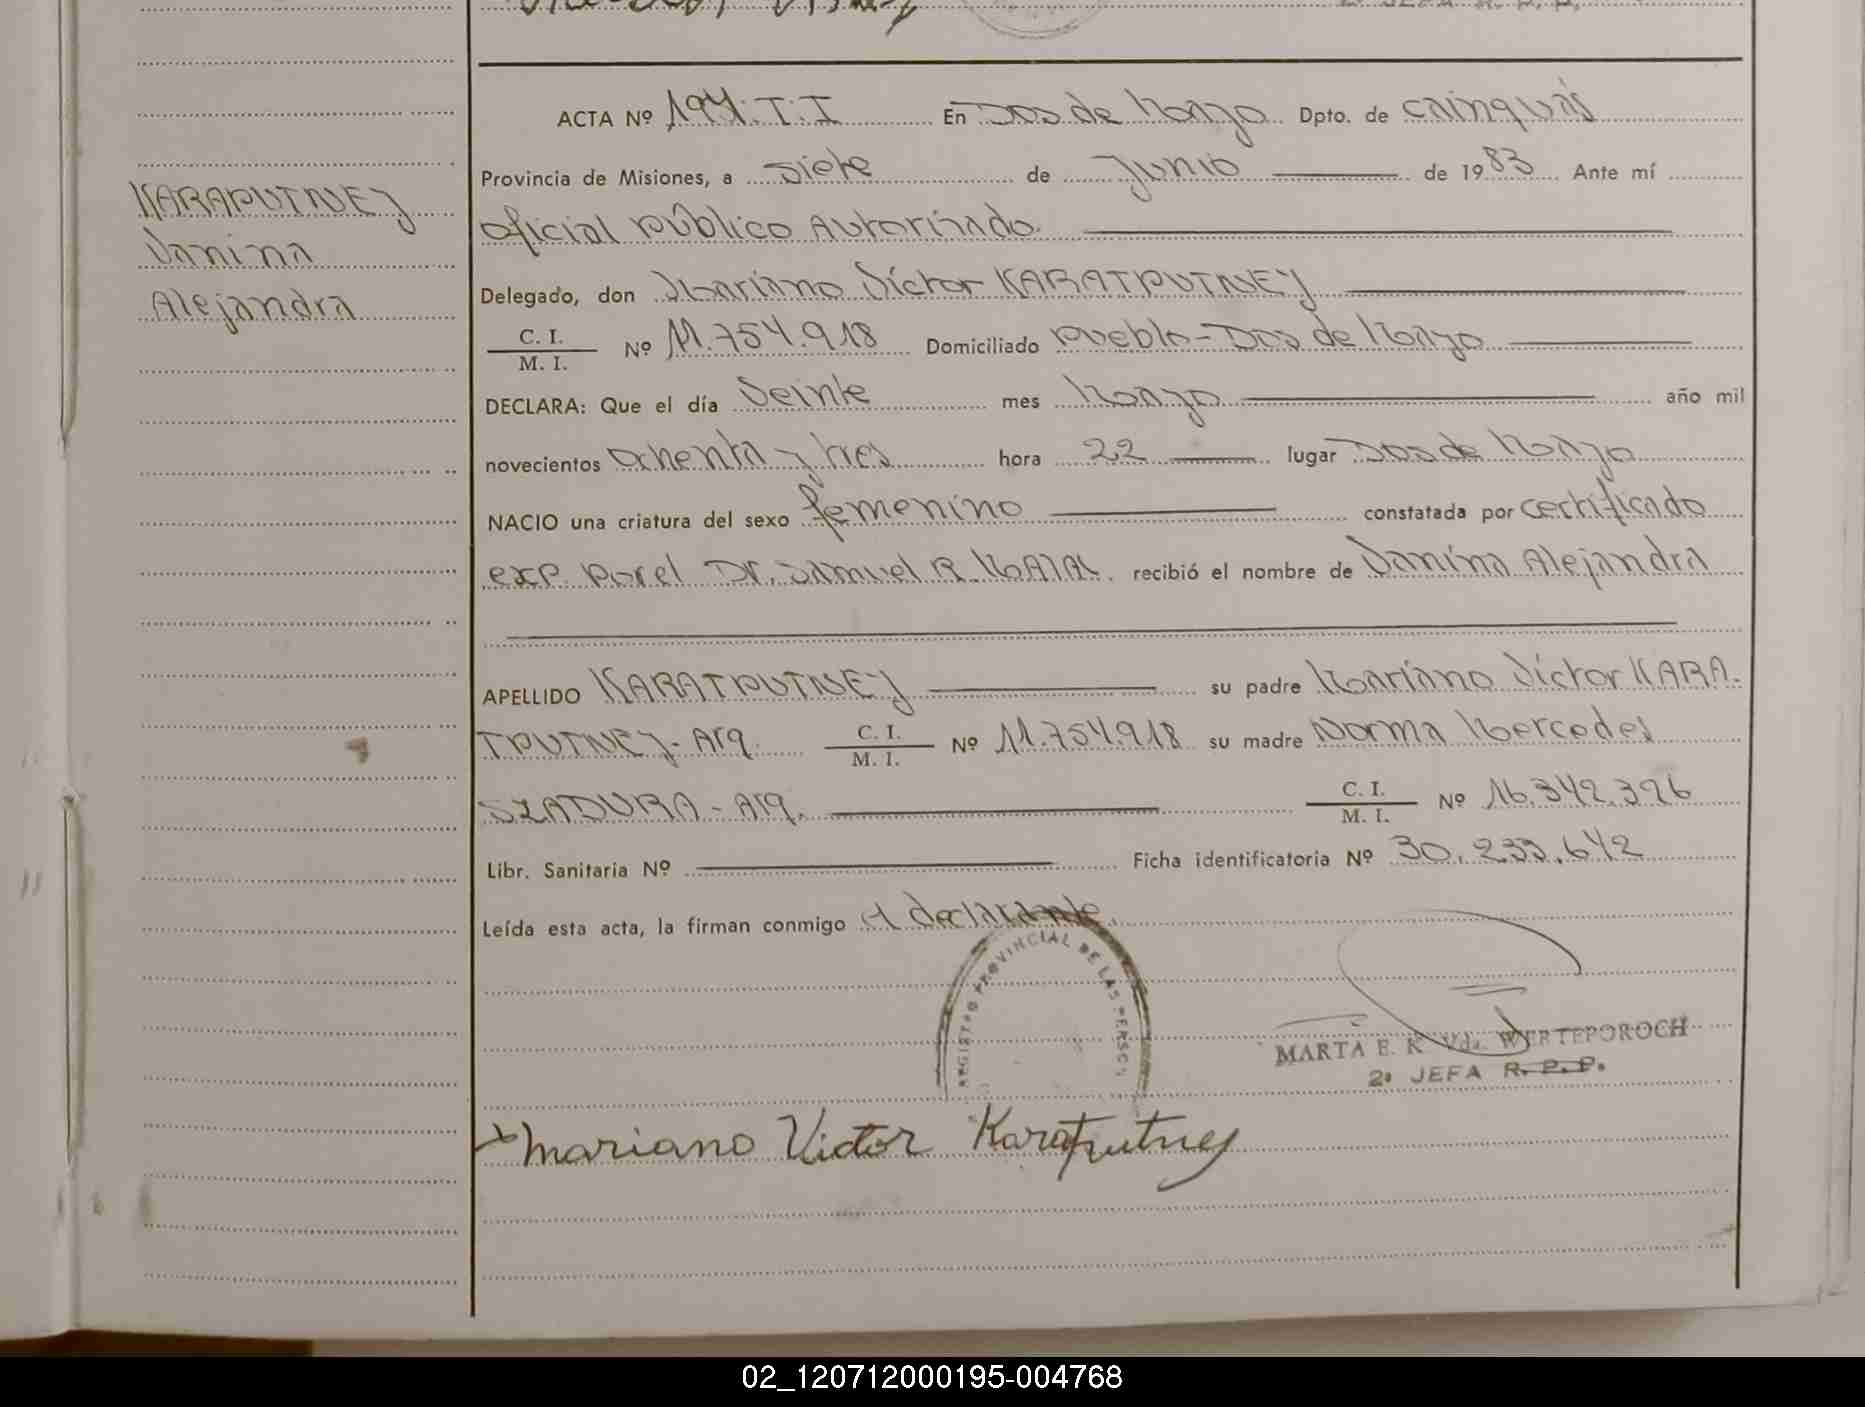 ACTA Nº 194. T. I En Dos de Mayo Dpto. de Cainguás
Provincia de Misiones, a Siete de Junio de 1983 Ante mí
Oficial Público Autorizado
KARAPUTNEY
Janina
Alejandra
Delegado, don Mariano Víctor KARATPUTNEY
C. I.
M. I. Nº 11.754.918 Domiciliado Pueblo - Dos de Mayo
DECLARA: Que el día Veinte mes Mayo año mil
novecientos Ochenta y tres hora 22 lugar Dos de Mayo
NACIO una criatura del sexo femenino constatada por certificado
exp. por el Dr. Samuel R. recibió el nombre de Janina Alejandra
APELLIDO KARATPUTNEY su padre Mariano Víctor KARA-
TPUTNEY - Arg. C. I. M. I. Nº 11.754.918 su madre Norma Mercedes
SZADURA - Arg. C. I. M. I. Nº 16.342.326
Libr. Sanitaria Nº Ficha identificatoria Nº 30.233.642
Leída esta acta, la firman conmigo el declarante.
REGISTRO PROVINCIAL DE LAS PERSO
MARTA E. K. Vda. WERTEPOROCH
2º JEFA R. P. P.
Mariano Victor Karatputney
02_120712000195-004768